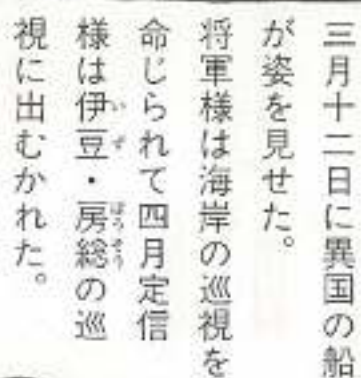 三月十二日に異国の船
が姿を見せた。
将軍様は海岸の巡視を
命じられて四月定信
様は伊豆・房総の巡
視に出むかれた。